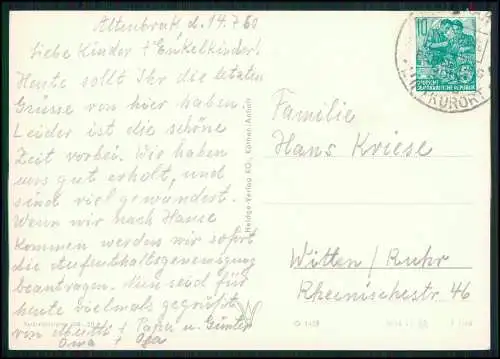 Altenbrak, d. 14.7.60
Liebe Kinder + Enkelkinder!
Heute sollt Ihr die letzten
Grüsse von hier haben.
Leider ist die schöne
Zeit vorbei. Wir haben
uns gut erholt, und
sind viel gewandert.
Wenn wir nach Hause
kommen werden wir sofort
die Aufenthaltsgenemigung
beantragen. Nun seid für
heute vielmals gegrüßt
von Mutti + Papa u. Günter
Oma + Opa
10
DEUTSCHE
DEMOKRATISCHE REPUBLIK
KURORT
Familie
Hans Kriese
Witten / Ruhr
Rheinischestr. 46
Heldge-Verlag KG., Köthen/Anhalt